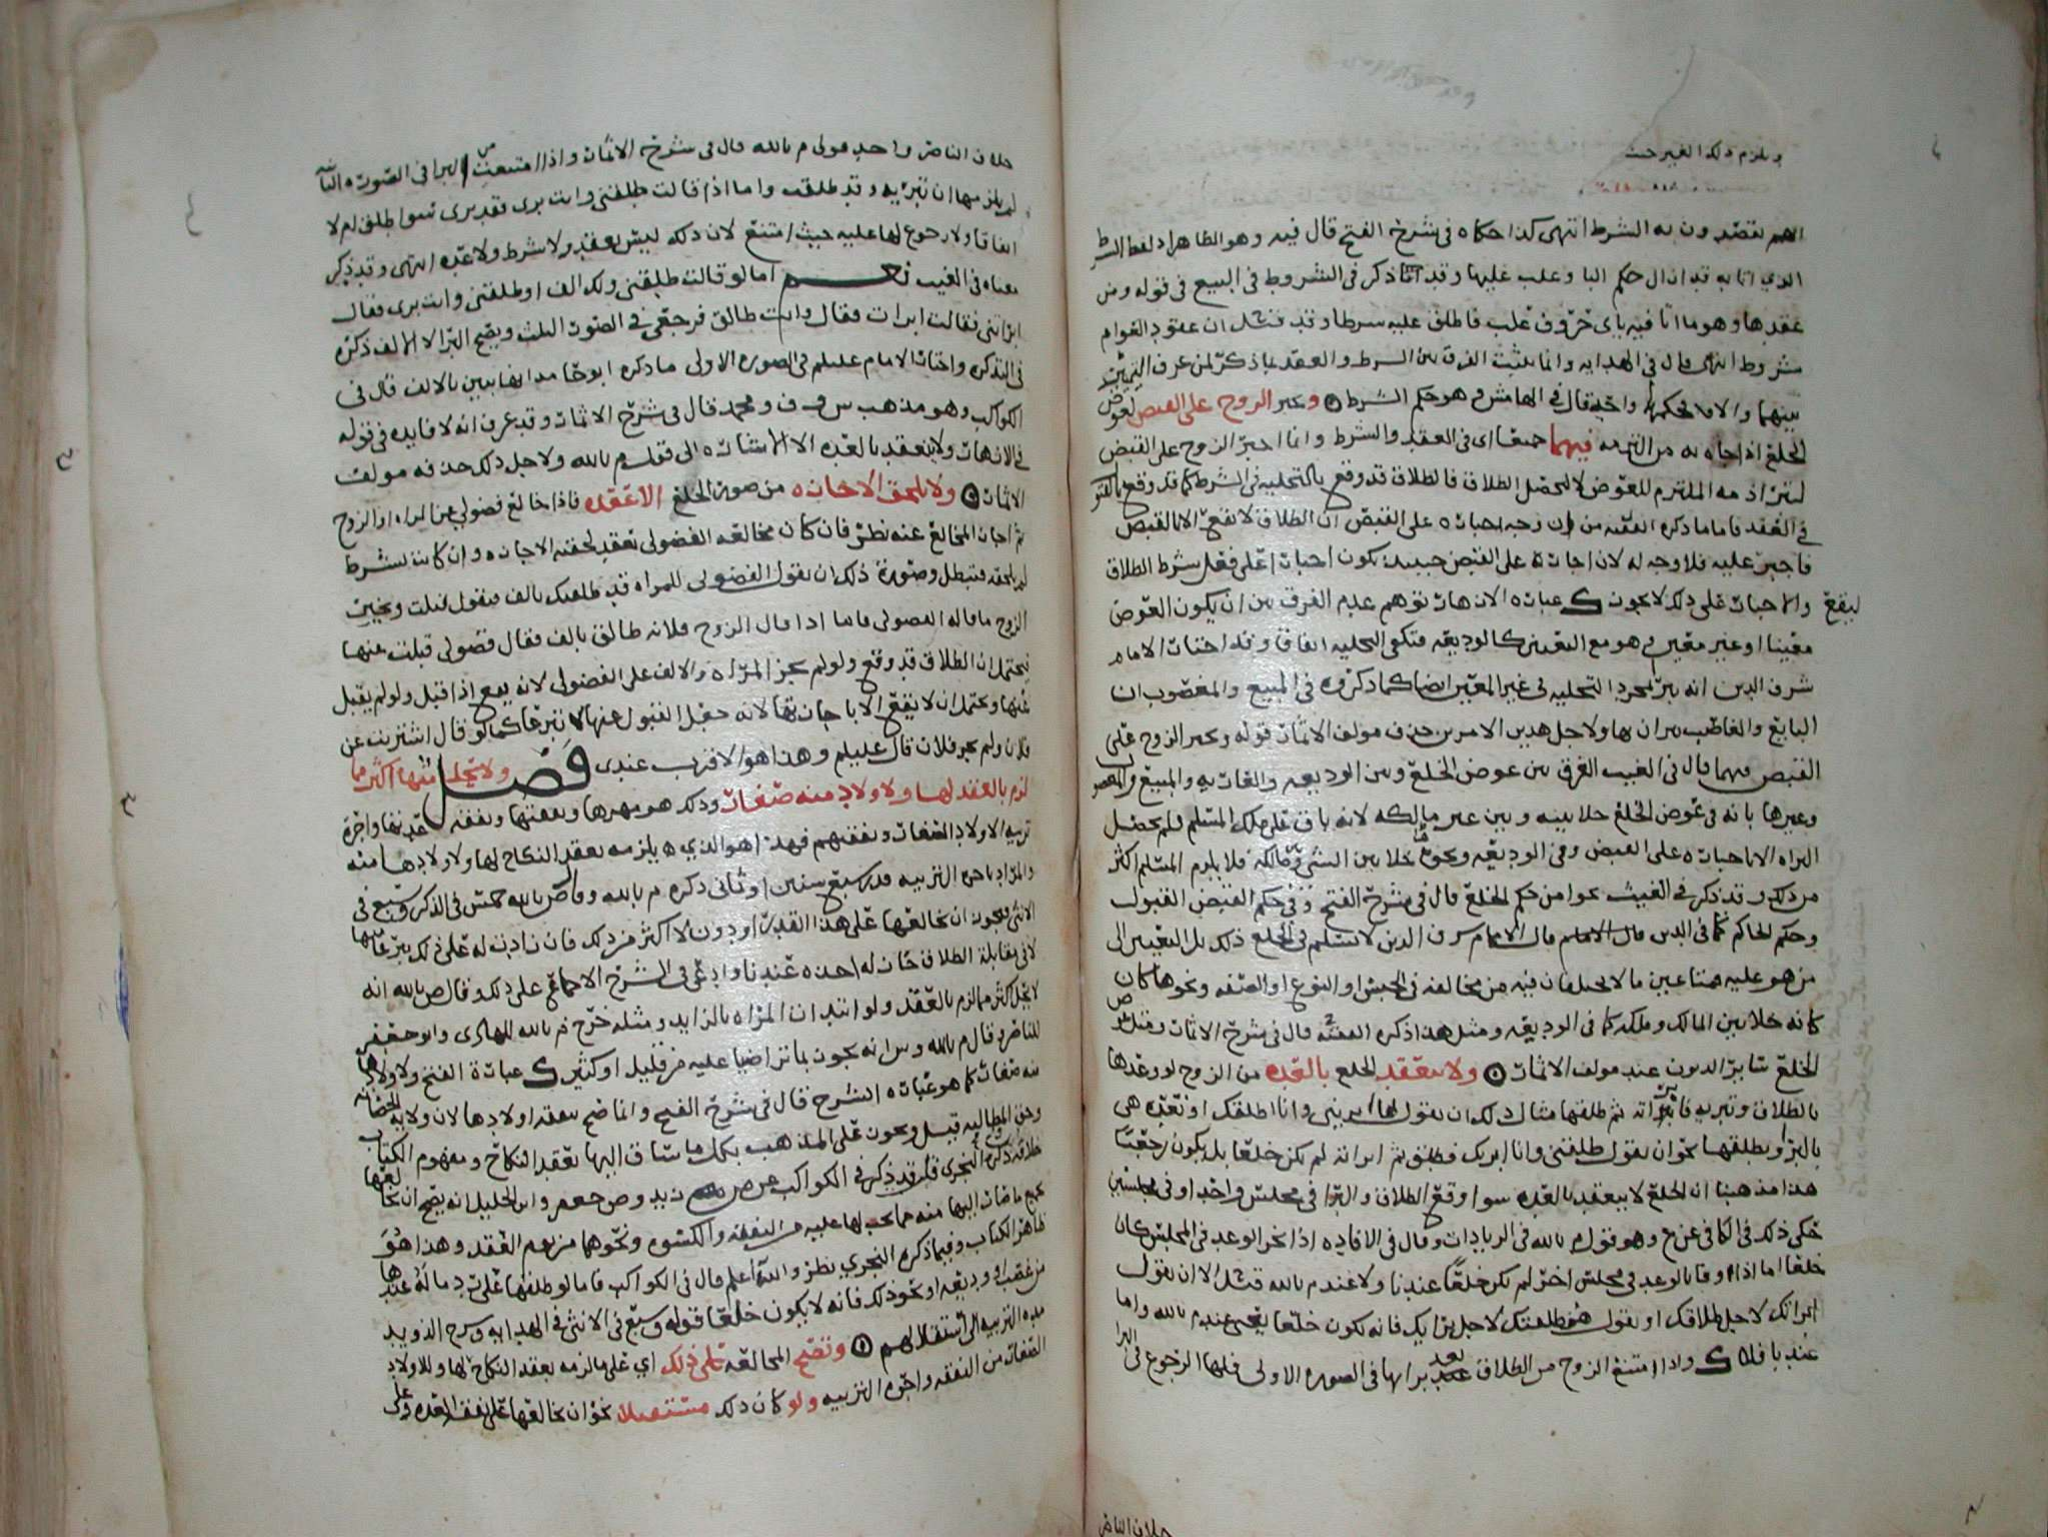 ويلزم ذلك الغير حيث
انهم يقصدون به الشرط انتهى كذا حكاه في شرح الفتح قال فيه وهو الظاهر اذ لفظ الشرط
الذي اتا به قد ازال حكم البا وغلب عليها وقد ذكر في الشروط في البيع في قوله ومن
عقدها وهو ما اتا فيه باي حروف غلب فاطلق عليه شرطا وقد قيل ان عقود العوام
مشروط انتهى قال في الهدايه وانما يثبت الفرق بين الشرط والعقد بما ذكر لمن عرف التمييز
بينهما والا فلا قال في الهامش هو حكم الشرط ويجبر الزوج على القبض لعوض
الخلع اذا جاء به من التزمه فيهما جميعا اي في العقد والشرط وانما اجبر الزوج على القبض
لتبرا ذمه الملتزم للعوض لا لتحصل الطلاق فالطلاق قد وقع بالتخليه في الشرط كما قد وقع
في العقد فاما ما ذكره الفقيه من ان وجه اجباره على القبض ان الطلاق لا يقع الا بالقبض
فاجبر عليه فلا وجه له لان اجباره على القبض حينئذ يكون اجبارا على فعل شرط الطلاق
ليقع والاجبار على ذلك لا يجوز عباره الازهار توهم عدم الفرق بين ان يكون العوض
معينا او غير معين وهو مع التعيين كالوديعه فتكفي التخليه اتفاقا وقد اختار الامام
شرف الدين انه يبرا بمجرد التخليه في غير المعين ايضا كما ذكروه في المبيع والمغصوب ان
البايع والغاصب يبران بها ولاجل هذين الامرين حذف مولف الاثمار قوله ويجبر الزوج على
القبض فيهما قال في الغيث الفرق بين عوض الخلع وبين الوديعه والعاريه والمبيع
وغيرها بانه في عوض الخلع خلا بينه وبين غير مالكه لانه باق على ملك المسلم فلم يحصل
البراه الا باجباره على القبض وفي الوديعه ونحوها خلا بين الشي ومالكه فلا يلزم المسلم اكثر
من ذلك وقد ذكر في الغيث نحوا من حكم الخلع قال في شرح الفتح وفي حكم القبض القبول
وحكم الحاكم كما في الدين قال الامام شرف الدين لا يسلم في الخلع ذلك بل التعيين الى
من هو عليه
كانه خلا بين المالك وملكه كما في الوديعه ومثل هذا ذكره الفقيه قال في شرح الاثمار
الخلع ساير الديون عند مولف الاثمار ولا ينعقد الخلع بالعده من الزوج لو وعدها
بالطلاق وتبريه فابراته ثم طلقها مثال ذلك ان يقول لها ابريني وانا اطلقك او تعده هي
بالبرا ويطلقها نحو ان يقول طلقتني وانا ابريك فطلق ثم ابراته لم يكن خلعا بل يكون رجعيا
هذا مذهبنا ان الخلع لا ينعقد بالعده سوا وقع الطلاق والبرا في مجلس واحد او في مجلسين
حكى ذلك في الكافي عن ع وهو قول م بالله في الزيادات وقال في الافاده اذا نجز الوعد في المجلس كان
خلعا اما اذا وفا بالوعد في مجلس اخر لم يكن خلعا عندنا ولا عند م بالله قيل الا ان يقول
ابراتك لاجل طلاقك او يقول هو طلقتك لاجل برايك فانه يكون خلعا عند م بالله واما
عندنا فلا واذا امتنع الزوج من الطلاق بعد برايها في الصوره الاولى فلها الرجوع في البرا
خلاف الناصر
خلاف الناصر واحد قولي م بالله قال في شرح الاثمار واذا امتنعت من البرا في الصوره الثانيه
لم يلزمها ان تبريه وقد طلقت واما اذا قالت طلقني وانت بري فقد بري سوا طلق ام لا
اتفاقا ولا رجوع لها عليه حيث امتنع لان ذلك ليس بعقد ولا شرط ولا عده انتهى وقد ذكر
معناه في الغيث نعم اما لو قالت طلقني ولك الف او طلقني وانت بري فقال
ابراتني فقالت ابرات فقال وانت طالق فرجعي في الصور الثلث ويصح البرا لا الالف ذكره
في التذكره واختار الامام عليلم في الصوره الاولى ما ذكره ابو حامد انها تبين بالالف قال في
الكواكب وهو مذهب س و ف ومحمد قال في شرح الاثمار وقد عرف انه لا فايده في قوله
في الازهار ولا ينعقد بالعده الا الاشاره الى قول م بالله ولاجل ذلك حذفه مولف
الاثمار ولا تلحق الاجازه من صوره الخلع الا عقده فاذا خالع فضولي عن المراه او الزوج
ثم اجاز المخالع عنه نظر فان كان مخالعه الفضولي بعقد لحقته الاجازه وان كانت بشرط
لم يلحقه فتبطل وصورة ذلك ان يقول الفضولي للمراه قد طلقتك بالف فتقول قبلت ويجيز
الزوج ما قاله الفضولي فاما اذا قال الزوج فلانه طالق بالف فقال فضولي قبلت عنها
فيحتمل ان الطلاق قد وقع ولو لم يجز المراه والالف على الفضولي لانه يقع اذا قبل ولو لم يقبل
عنها ويحتمل ان لا يقع الا باجازتها لانه جعل القبول عنها لا تبرعا كما لو قال اشتريت عن
فلان ولم يجز فلان قال عليلم وهذا هو الاقرب عندي فصل ولا يحل منها اكثر مما
لزم بالعقد لها ولاولاد منه صغار وذلك هو مهرها ونفقتها ونفقه عدتها واجرة
تربيه الاولاد الصغار ونفقتهم فهذا هو الذي يلزمه بعقد النكاح لها ولاولادها منه
والمراد باجره التربيه قدر سبع سنين او ثماني ذكره م بالله وقال ص بالله خمس في الذكر وسبع في
الانثى فيجوز ان يخالعها على هذا القدر او دون لا اكثر من ذلك فان زادت له على ذلك تبرعا منها
لا في مقابلة الطلاق جاز له اخذه عندنا وادعى في الشرح الاجماع على ذلك وقال ص بالله انه
لا يحل اكثر مما لزم بالعقد ولو ابتدات المراه بالزايد ومثله خرج م بالله للهادي وابو جعفر
للناصر وقال م بالله وس انه يجوز بما تراضيا عليه من قليل او كثير عبارة الفتح ولاولادها
منه صغار كما هو عباره الشرح قال في شرح الفتح وانما صح بنفقه اولادها لان ولايه الحضانه
وحق المطالبه قيل ويجوز على المذهب بكل ما ساق اليها بعقد النكاح ومفهوم الكتاب
خلافه ذكره النجري قلت وقد ذكر في الكواكب عن زيد وص جعفر وابن الخليل انه يصح ان يخالعها
بجميع ما صار اليها منه مما يجب لها عليه من النفقه والكسوه ونحوهما مع العقد وهذا هو
ظاهر الكتاب وفيما ذكره النجري نظر والله اعلم قال في الكواكب فاما لو طلقها على رد ما له عندها
من غصب او وديعه او نحو ذلك فانه لا يكون خلعا قوله وسبع في الانثى في الهدايه وشرح الذويد
مده التربيه الى استقلالهم وتصح المخالعه على ذلك اي على ما لزمه بعقد النكاح لها وللاولاد
الصغار من النفقه واجره التربيه ولو كان ذلك مستقبلا نحو ان يخالعها على نفقه العده وعلى